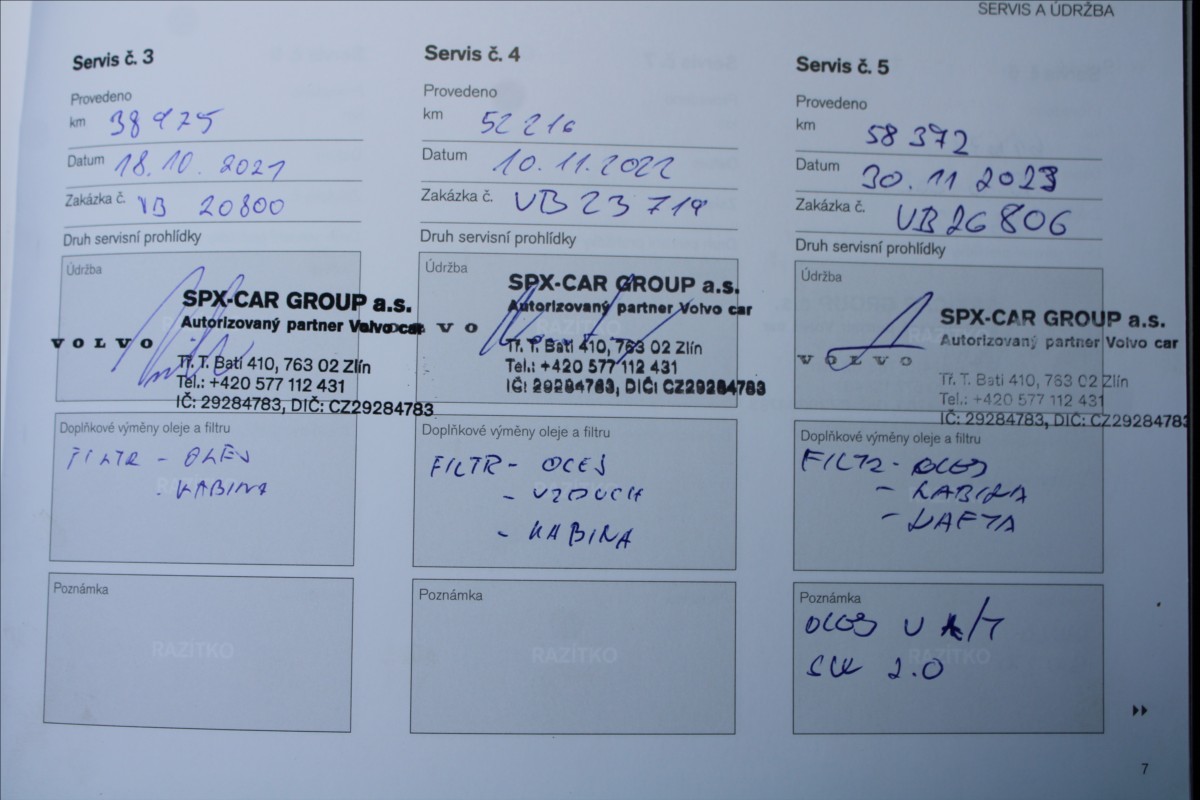 SERVIS A ÚDRŽBA
Servis č. 3
Provedeno
km 38 975
Datum 18.10.2021
Zakázka č. VB 20800
Druh servisní prohlídky
Údržba
VOLVO
SPX-CAR GROUP a.s.
Autorizovaný partner Volvo car
Tř. T. Bati 410, 763 02 Zlín
Tel.: +420 577 112 431
IČ: 29284783, DIČ: CZ29284783
Doplňkové výměny oleje a filtru
FILTR - OLEJ
- KABINA
Poznámka
RAZÍTKO
Servis č. 4
Provedeno
km 52 216
Datum 10.11.2022
Zakázka č. VB23719
Druh servisní prohlídky
Údržba
VOLVO
SPX-CAR GROUP a.s.
Autorizovaný partner Volvo car
Tř. T. Bati 410, 763 02 Zlín
Tel.: +420 577 112 431
IČ: 29284783, DIČ: CZ29284783
Doplňkové výměny oleje a filtru
FILTR - OLEJ
- VZDUCH
- KABINA
Poznámka
RAZÍTKO
Servis č. 5
Provedeno
km 58 372
Datum 30.11 2023
Zakázka č. VB26806
Druh servisní prohlídky
Údržba
VOLVO
SPX-CAR GROUP a.s.
Autorizovaný partner Volvo car
Tř. T. Bati 410, 763 02 Zlín
Tel.: +420 577 112 431
IČ: 29284783, DIČ: CZ29284783
Doplňkové výměny oleje a filtru
FILTR - OLEJ
- KABINA
- NAFTA
Poznámka
OLEJ V A/T
RAZÍTKO
2.0
7